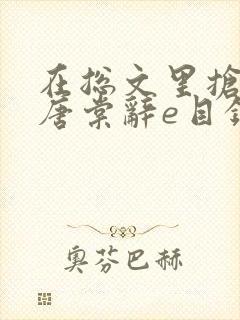 在总文里抢
唐棠辞e目录
奥芬巴赫